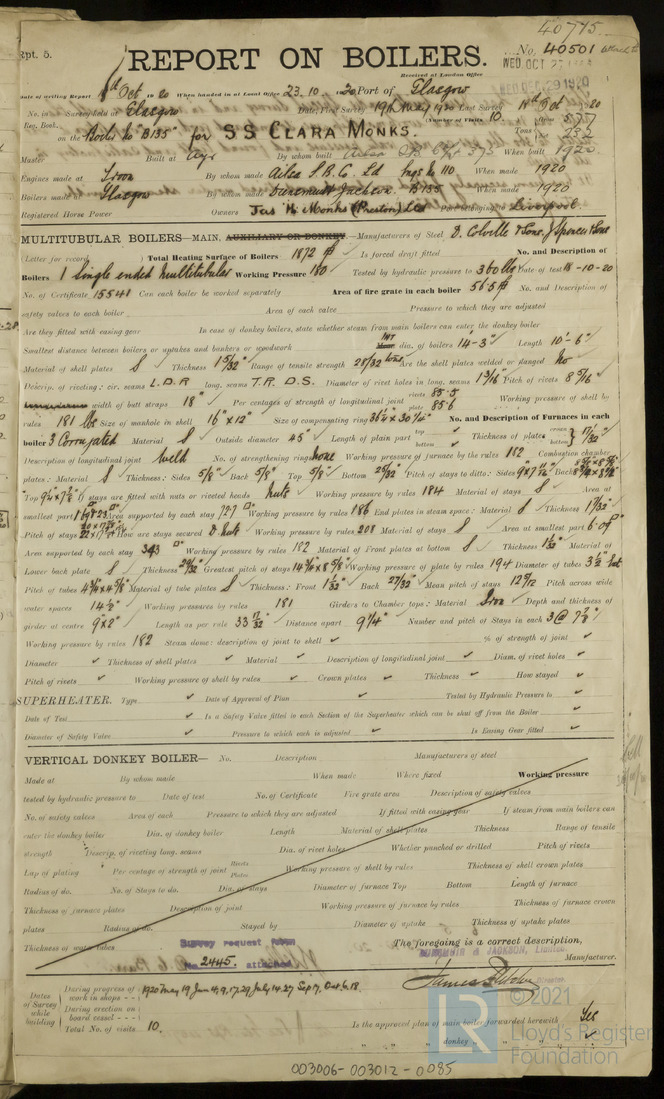 40775
Rpt. 5.
REPORT ON BOILERS.
No. 40501
Received at London Office
WED. OCT 27
WED. DEC 29 1920
Date of writing Report Oct 1920 When handed in at Local Office 23.10.1920 Port of Glasgow
No. in Survey held at Glasgow Date, First Survey 19th May 1920 Last Survey 18th Oct 1920
Reg. Book. (Number of Visits 10)
on the Boiler to "B135" for S S CLARA MONKS. Tons
Master Built at Ayr By whom built When built 1920
Engines made at Troon By whom made Ailsa S. B. Co Ltd Engs No 110 When made 1920
Boilers made at Glasgow By whom made Dunsmuir & Jackson B135 When made 1920
Registered Horse Power Owners Jas. H. Monks (Preston) Ltd Port belonging to Liverpool
MULTITUBULAR BOILERS—MAIN, AUXILIARY OR DONKEY.—Manufacturers of Steel D. Colville & Sons, J Spencer & Sons
(Letter for record ) Total Heating Surface of Boilers 1872 Is forced draft fitted No. and Description of
Boilers 1 Single ended multitubular Working Pressure 180 Tested by hydraulic pressure to 360 lbs Date of test 18-10-20
No. of Certificate 15541 Can each boiler be worked separately Area of fire grate in each boiler 56.5 No. and Description of
safety valves to each boiler Area of each valve Pressure to which they are adjusted
Are they fitted with easing gear In case of donkey boilers, state whether steam from main boilers can enter the donkey boiler
Smallest distance between boilers or uptakes and bunkers or woodwork dia. of boilers 14-3" Length 10'-6"
Material of shell plates S Thickness 15/32" Range of tensile strength 28/32 tons Are the shell plates welded or flanged No
Descrip. of riveting: cir. seams L.D.R long. seams T.R. D.S. Diameter of rivet holes in long. seams 1 3/16" Pitch of rivets 8 5/16"
width of butt straps 18" Per centages of strength of longitudinal joint rivets 85.5 plate 85.6 Working pressure of shell by
rules 181 lbs Size of manhole in shell 16" x 12" Size of compensating ring No. and Description of Furnaces in each
boiler 3 Corrugated Material S Outside diameter 45" Length of plain part top bottom Thickness of plates crown bottom 17/32"
Description of longitudinal joint weld No. of strengthening rings none Working pressure of furnace by the rules 182 Combustion chamber
plates: Material S Thickness: Sides 5/8" Back 5/8" Top 5/8" Bottom Pitch of stays to ditto: Sides Back
Top If stays are fitted with nuts or riveted heads Nuts Working pressure by rules 184 Material of stays S Area at
smallest part Area supported by each stay Working pressure by rules 186 End plates in steam space: Material S Thickness 17/32"
Pitch of stays How are stays secured D Nuts Working pressure by rules 208 Material of stays S Area at smallest part
Area supported by each stay 343 Working pressure by rules 182 Material of Front plates at bottom S Thickness 1/32 Material of
Lower back plate S Thickness Greatest pitch of stays Working pressure of plate by rules 194 Diameter of tubes 3 1/2"
Pitch of tubes 4 3/4" x 4 5/8" Material of tube plates S Thickness: Front Back 27/32" Mean pitch of stays Pitch across wide
water spaces 14 1/2" Working pressures by rules 181 Girders to Chamber tops: Material Iron Depth and thickness of
girder at centre 9" x 2" Length as per rule 33 17/32" Distance apart 9 1/4" Number and pitch of Stays in each 3 @ 7 3/8"
Working pressure by rules 182 Steam dome: description of joint to shell % of strength of joint
Diameter Thickness of shell plates Material Description of longitudinal joint Diam. of rivet holes
Pitch of rivets Working pressure of shell by rules Crown plates Thickness How stayed
SUPERHEATER. Type Date of Approval of Plan Tested by Hydraulic Pressure to
Date of Test Is a Safety Valve fitted in each Section of the Superheater which can be shut off from the Boiler
Diameter of Safety Valve Pressure to which each is adjusted Is Easing Gear fitted
VERTICAL DONKEY BOILER— No. Description Manufacturers of steel
Made at By whom made When made Where fixed Working pressure
tested by hydraulic pressure to Date of test No. of Certificate Fire grate area Description of safety valves
No. of safety valves Area of each Pressure to which they are adjusted If fitted with easing gear If steam from main boilers can
enter the donkey boiler Dia. of donkey boiler Length Material of shell plates Thickness Range of tensile
strength Descrip. of riveting long. seams Dia. of rivet holes Whether punched or drilled Pitch of rivets
Lap of plating Per centage of strength of joint Rivets Plates Working pressure of shell by rules Thickness of shell crown plates
Radius of do. No. of Stays to do. Dia. of stays Diameter of furnace Top Bottom Length of furnace
Thickness of furnace plates Description of joint Working pressure of furnace by rules Thickness of furnace crown
plates Radius of do. Stayed by Diameter of uptake Thickness of uptake plates
Thickness of water tubes
Survey request form
No. 2445. attached
The foregoing is a correct description,
DUNSMUIR & JACKSON, Limited
Manufacturer.
Director
Dates of Survey while building
During progress of work in shops - - 1920 May 19 Jun 4, 9, 17, 29 July 14. 27 Sep 7, Oct 6. 18
During erection on board vessel - - -
Total No. of visits 10.
Is the approved plan of main boiler forwarded herewith Yes
" " " donkey " " "
003006-003012-0085
LR
© 2021
Lloyd's Register
Foundation